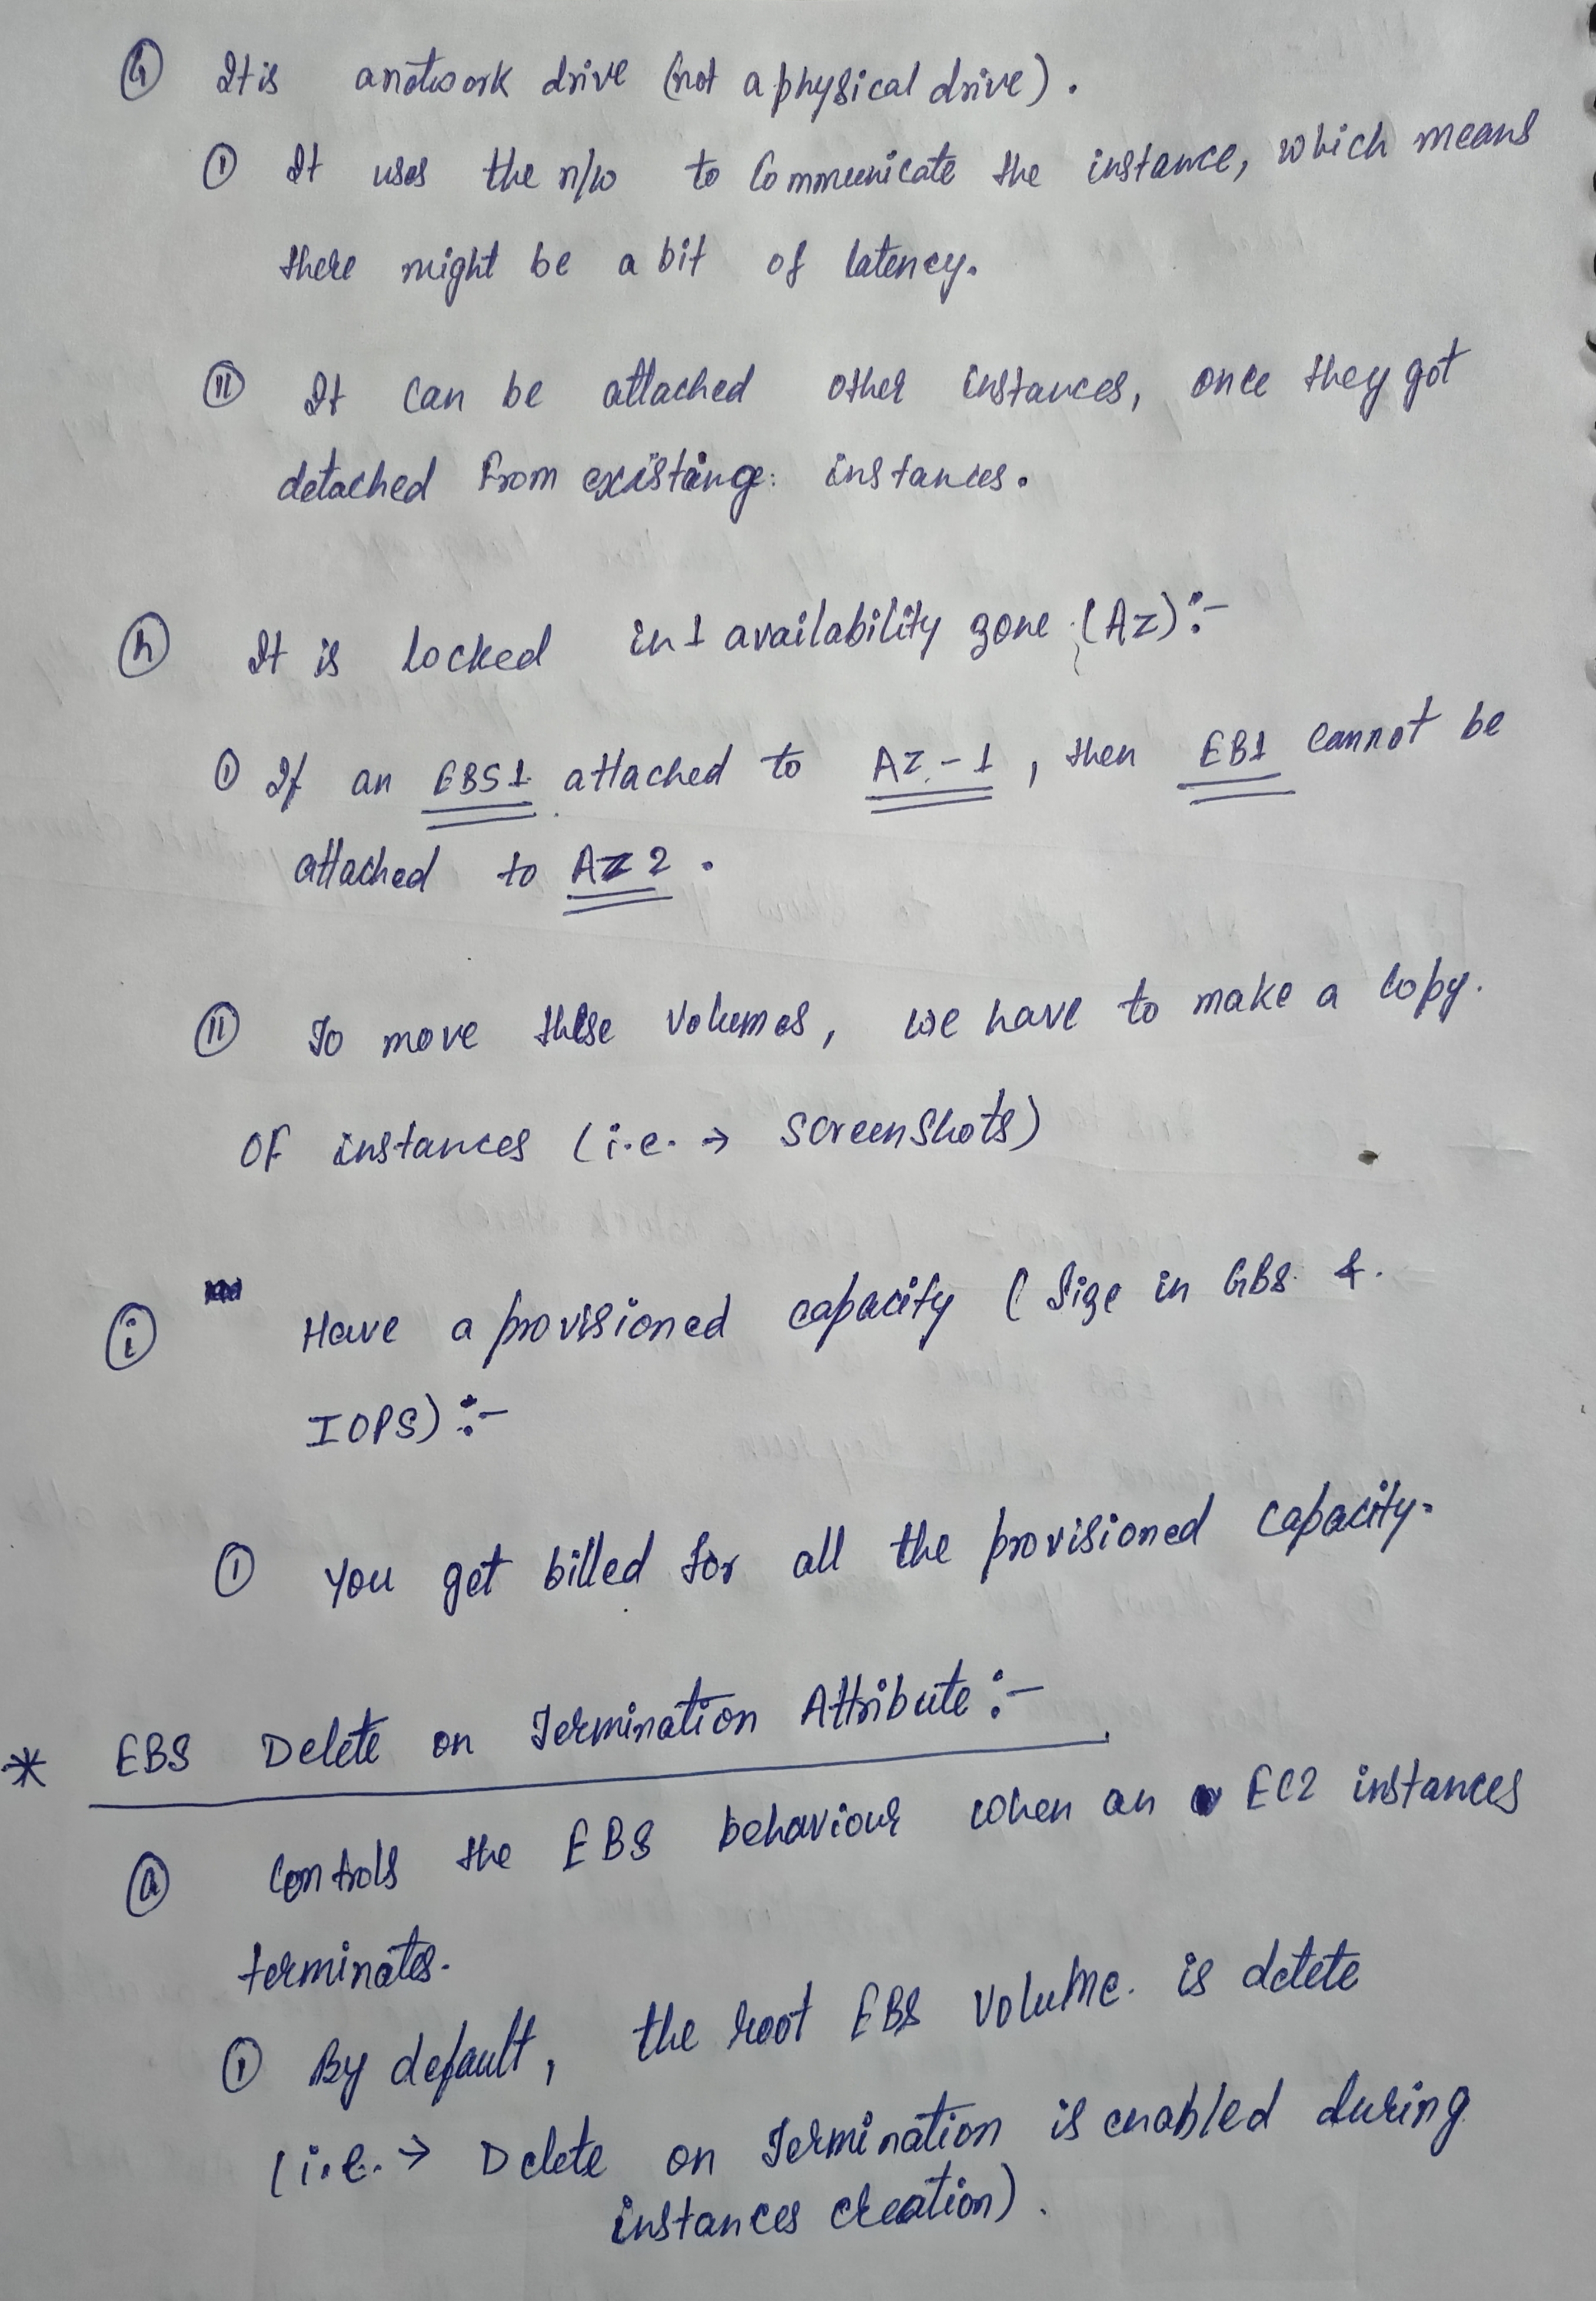 (G) It is a network drive (not a physical drive).
(I) It uses the n/w to Communicate the instance, which means
there might be a bit of latency.
(II) It can be attached other instances, once they got
detached From existing instances.
(h) It is locked in 1 availability zone (AZ):-
(I) If an EBS1 attached to AZ-1, then EB1 cannot be
attached to AZ2.
(II) To move these volumes, we have to make a copy.
OF instances (i.e. → Screenshots)
(i) Have a provisioned capacity (Size in GBs &
IOPS):-
(I) You get billed for all the provisioned capacity.
* EBS Delete on Termination Attribute:-
(a) Controls the EBS behaviour when an EC2 instances
terminates.
(I) By default, the root EBS volume is delete
(i.e. → Delete on Termination is enabled during
instances creation).